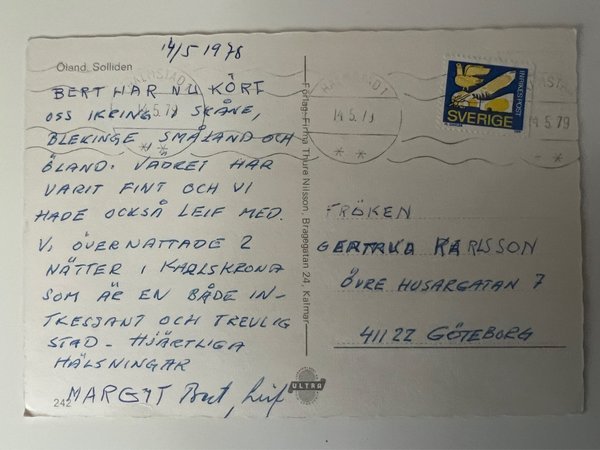 14/5 1978
Öland Solliden
BERT HAR NU KÖRT
OSS IKRING I SKÅNE,
BLEKINGE SMÅLAND OCH
ÖLAND. VÄDRET HAR
VARIT FINT OCH VI
HADE OCKSÅ LEIF MED.
VI ÖVERNATTADE 2
NÄTTER I KARLSKRONA
SOM ÄR EN BÅDE IN-
TRESSANT OCH TREVLIG
STAD - HJÄRTLIGA
HÄLSNINGAR
MARGIT Bert, Leif
242
Förlag: Firma Thure Nilsson, Bragegatan 24, Kalmar
ULTRA
HALMSTAD 1
14.5.79
14.5.79
14.5.79
INRIKESPOST
SVERIGE
FRÖKEN
GERTRUD KARLSSON
ÖVRE HUSARGATAN 7
41122 GÖTEBORG